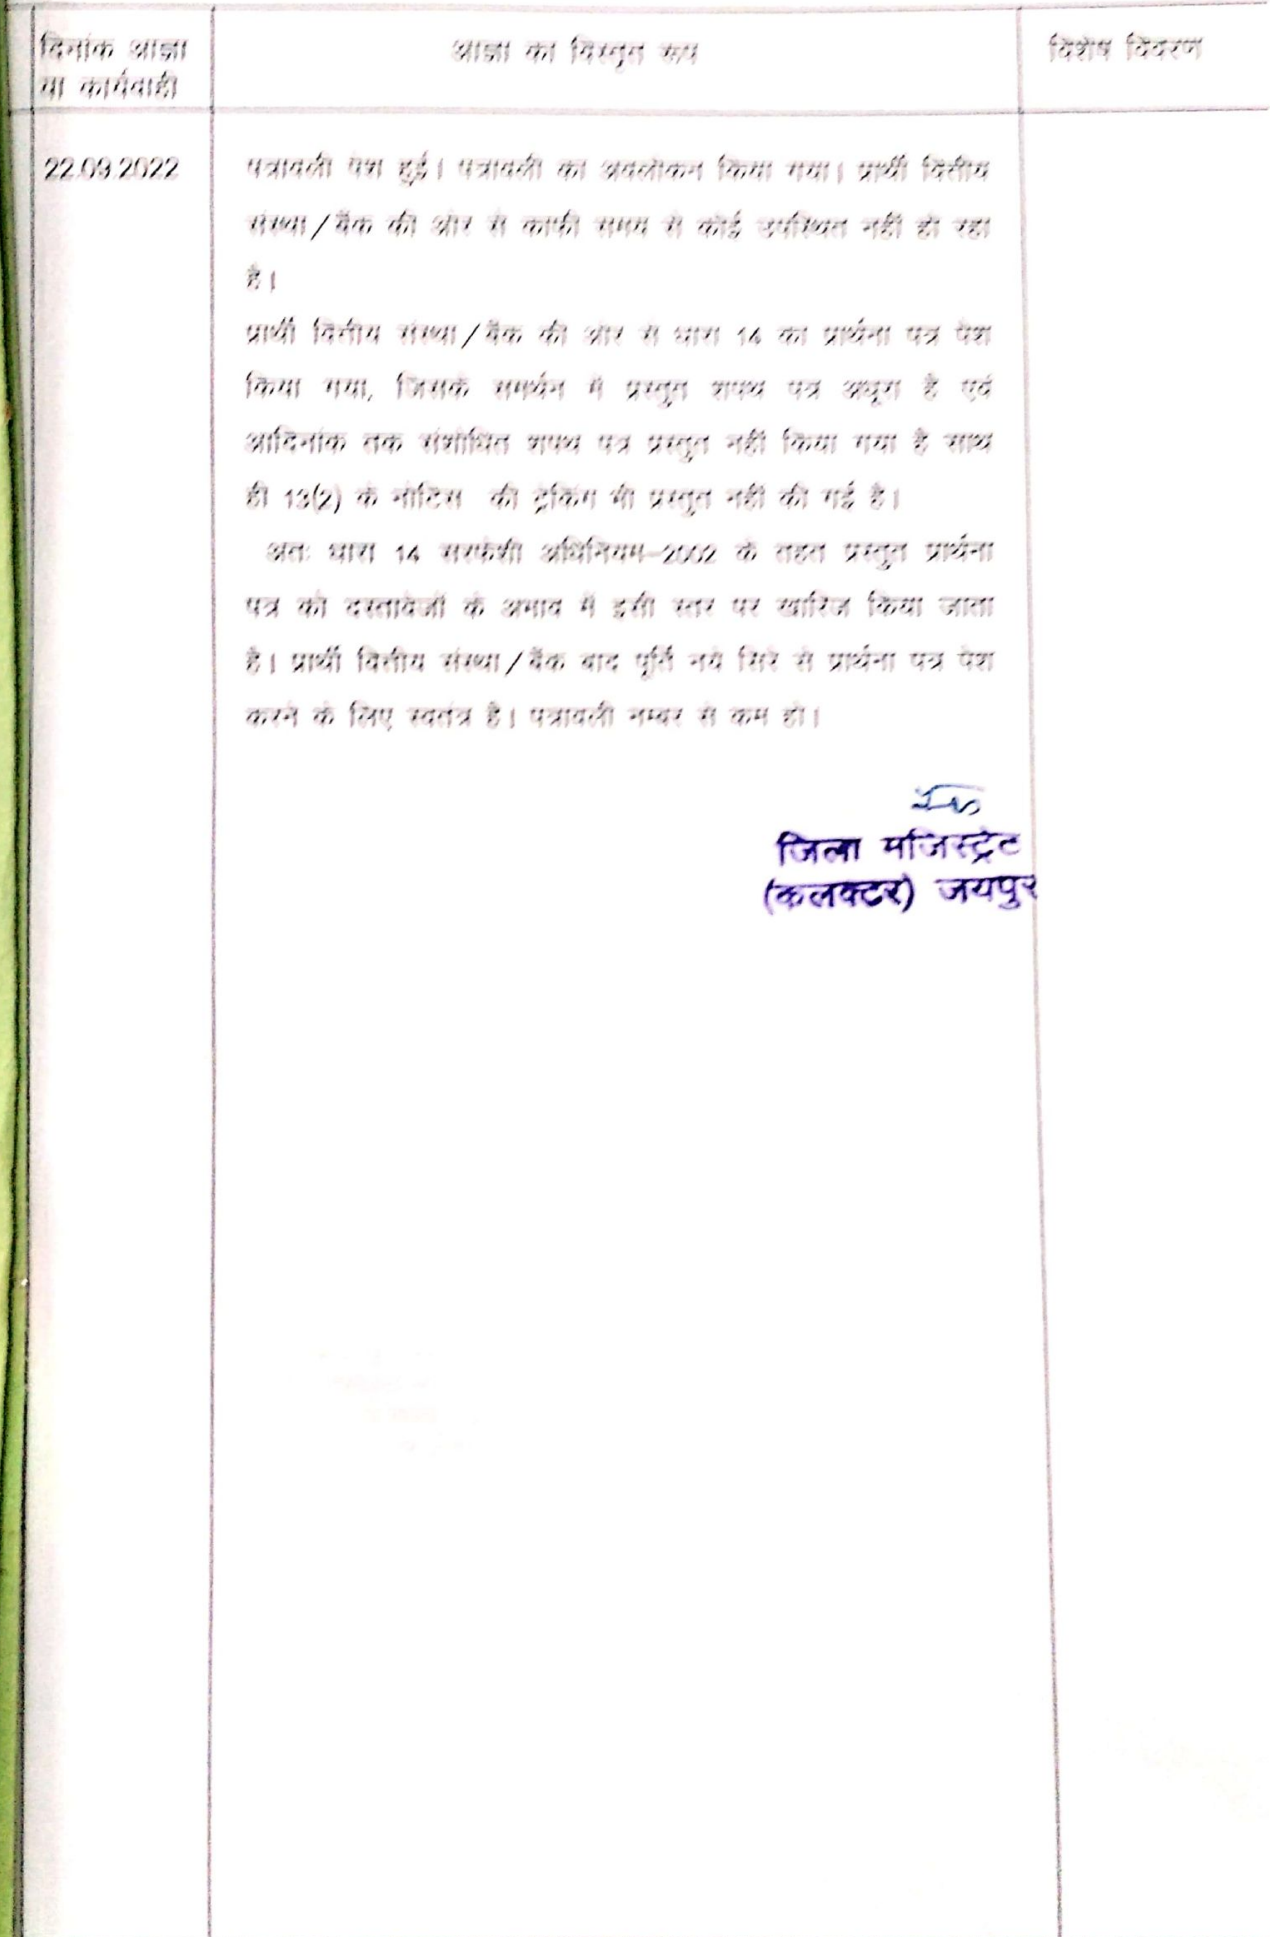 दिनांक आज्ञा
या कार्यवाही
आज्ञा का विस्तृत रूप
विशेष विवरण
22.09.2022
पत्रावली पेश हुई। पत्रावली का अवलोकन किया गया। प्रार्थी वित्तीय
संस्था/बैंक की ओर से काफी समय से कोई उपस्थित नहीं हो रहा
है।
प्रार्थी वित्तीय संस्था/बैंक की ओर से धारा 14 का प्रार्थना पत्र पेश
किया गया, जिसके समर्थन में प्रस्तुत शपथ पत्र अधूरा है एवं
आदिनांक तक संशोधित शपथ पत्र प्रस्तुत नहीं किया गया है साथ
ही 13(2) के नोटिस की ट्रेकिंग भी प्रस्तुत नहीं की गई है।
अतः धारा 14 सरफेसी अधिनियम-2002 के तहत प्रस्तुत प्रार्थना
पत्र को दस्तावेजों के अभाव में इसी स्तर पर खारिज किया जाता
है। प्रार्थी वित्तीय संस्था/बैंक बाद पूर्ति नये सिरे से प्रार्थना पत्र पेश
करने के लिए स्वतंत्र है। पत्रावली नम्बर से कम हो।
जिला मजिस्ट्रेट
(कलक्टर) जयपुर